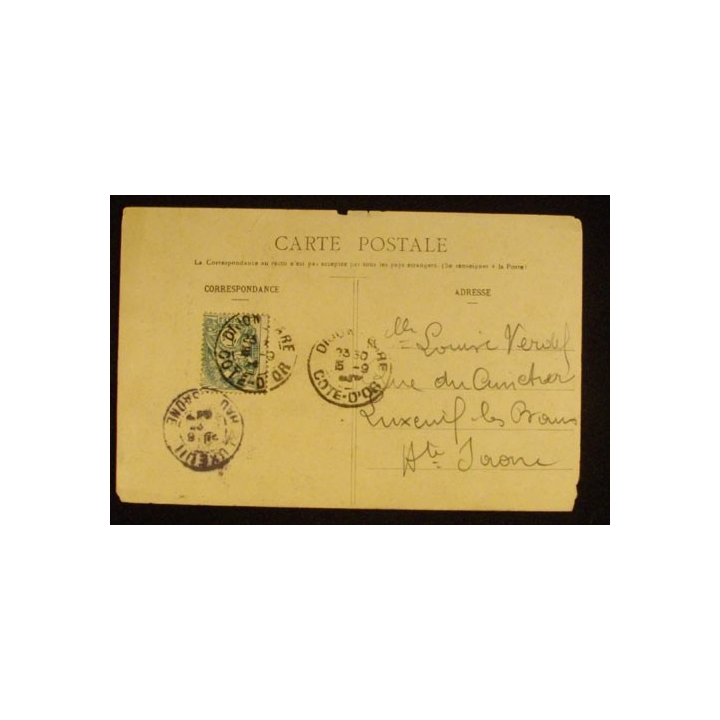 CARTE POSTALE
La Correspondance au recto n'est pas acceptée par tous les pays étrangers. (Se renseigner à la Poste)
CORRESPONDANCE
ADRESSE
DIJON GARE
COTE-D'OR
DIJON GARE
23 30
5 -9
COTE-D'OR
LUXEUIL
SAONE
Mlle Louise Verdel
rue du
Luxeuil les Bains
Hte Saone